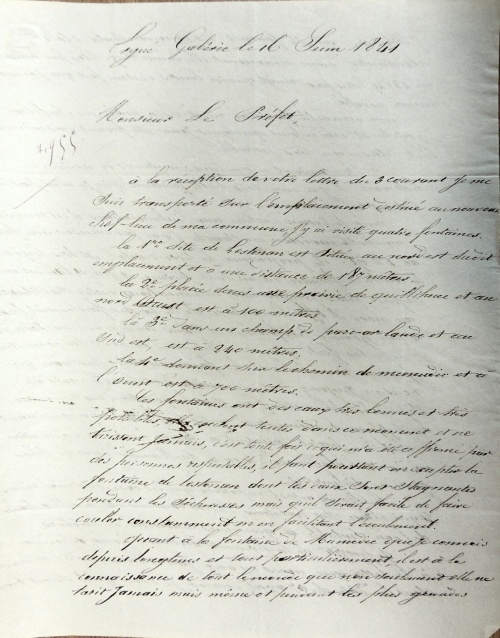 Ergué Gabéric le 16 Juin 1841
Monsieur Le Préfet,
955
à la réception de votre lettre du 3 courant je me
suis transporté sur l'emplacement destiné au nouveau
chef-lieu de ma commune, j'y ai visité quatre fontaines.
la 1re dite de Lestonan est située au nord est du dit
emplacement et à une distance de 187 mètres.
la 2e placée dans une prairie de et au
nord est à 100 mètres.
la 3e dans un champ de parc-ar lande et au
Sud est, est à 240 mètres.
la 4e donnant sur le chemin de et à
l'ouest est à 700 mètres.
Les fontaines ont des eaux très bonnes et très
potables, elles toutes dans ce moment et ne
tarissent jamais, c'est toute fois ce qui m'a été affirmé par
des personnes respectables, il faut pourtant en excepter la
fontaine de Lestonan dont les eaux sont Stagnantes
pendant les Sécheresses mais qu'il serait facile de faire
couler constamment en en facilitant l'écoulement.
quant à la fontaine de que je connais
depuis longtems et tout particulièrement, il est à la
connaissance de tout le monde que non seulement elle ne
tarit Jamais mais même et pendant les plus grandes